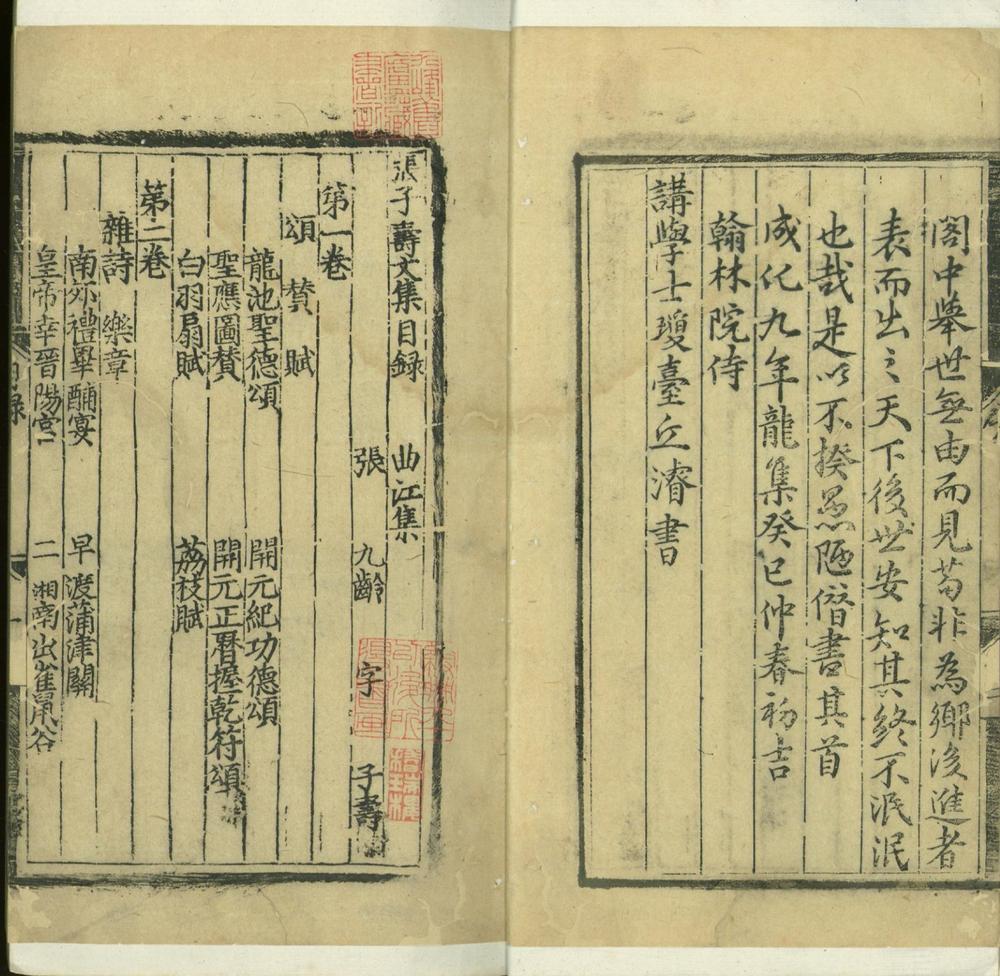 閣中舉世無由而見茍非為鄉後進者
表而出之天下後世安知其終不泯泯
也哉是以不揆愚陋僣書其首
成化九年龍集癸巳仲春初吉
翰林院侍
講學士瓊臺丘濬書
張子壽文集目録 曲江集
張 九齡 字 子壽
第一卷
頌 賛 賦
龍池聖德頌 開元紀功德頌
聖應圖賛 開元正曆握乾符頌
白羽扇賦 荔枝賦
第二卷
雜詩 樂章
南郊禮畢酺宴 早渡蒲津關
皇帝幸晉陽宮 二 湘南出雀鼠谷